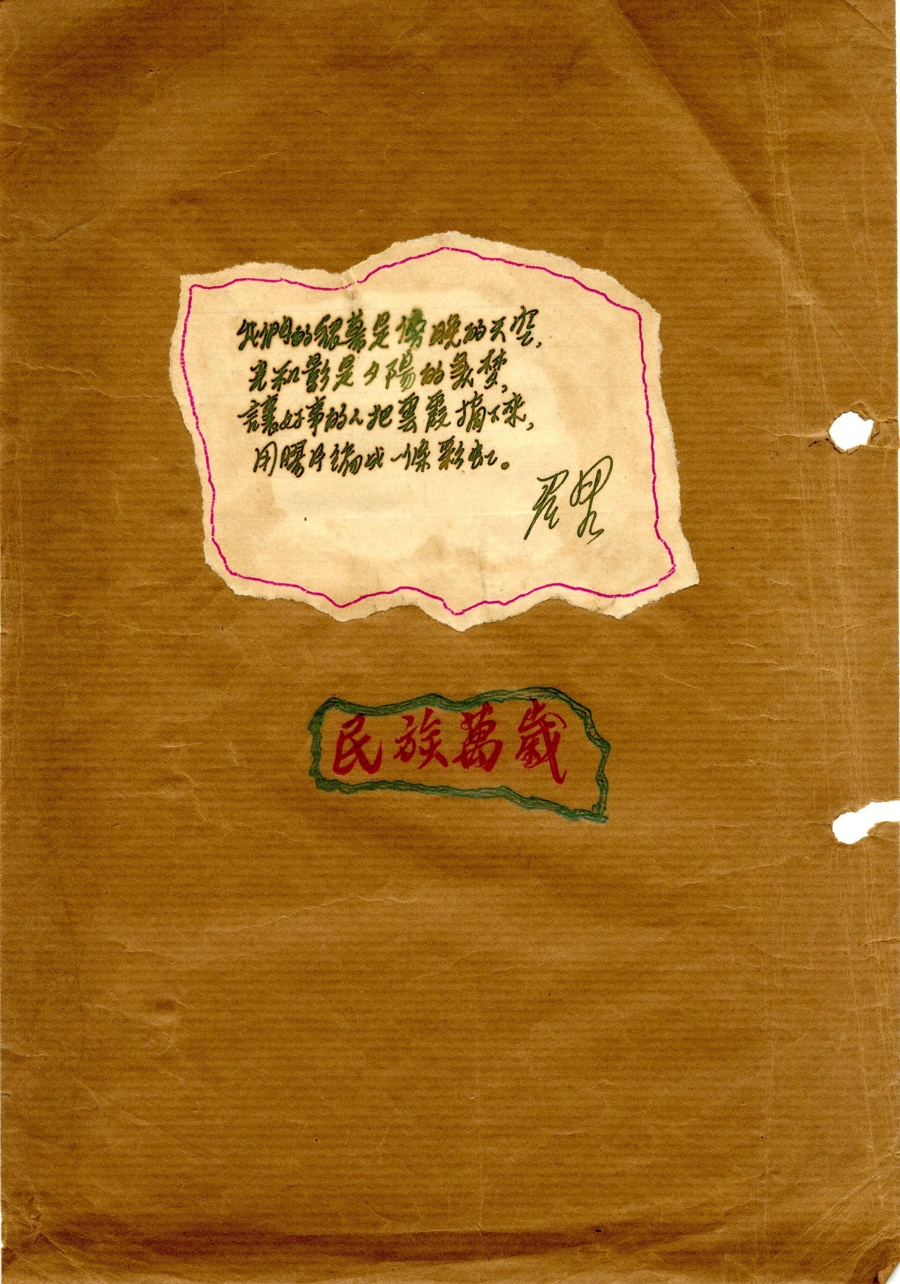 我們的銀幕是傍晚的天空,
光和影是夕陽的美夢,
讓好事的人把雲霞摘下來,
用膠片編成一條彩虹。
民族萬歲